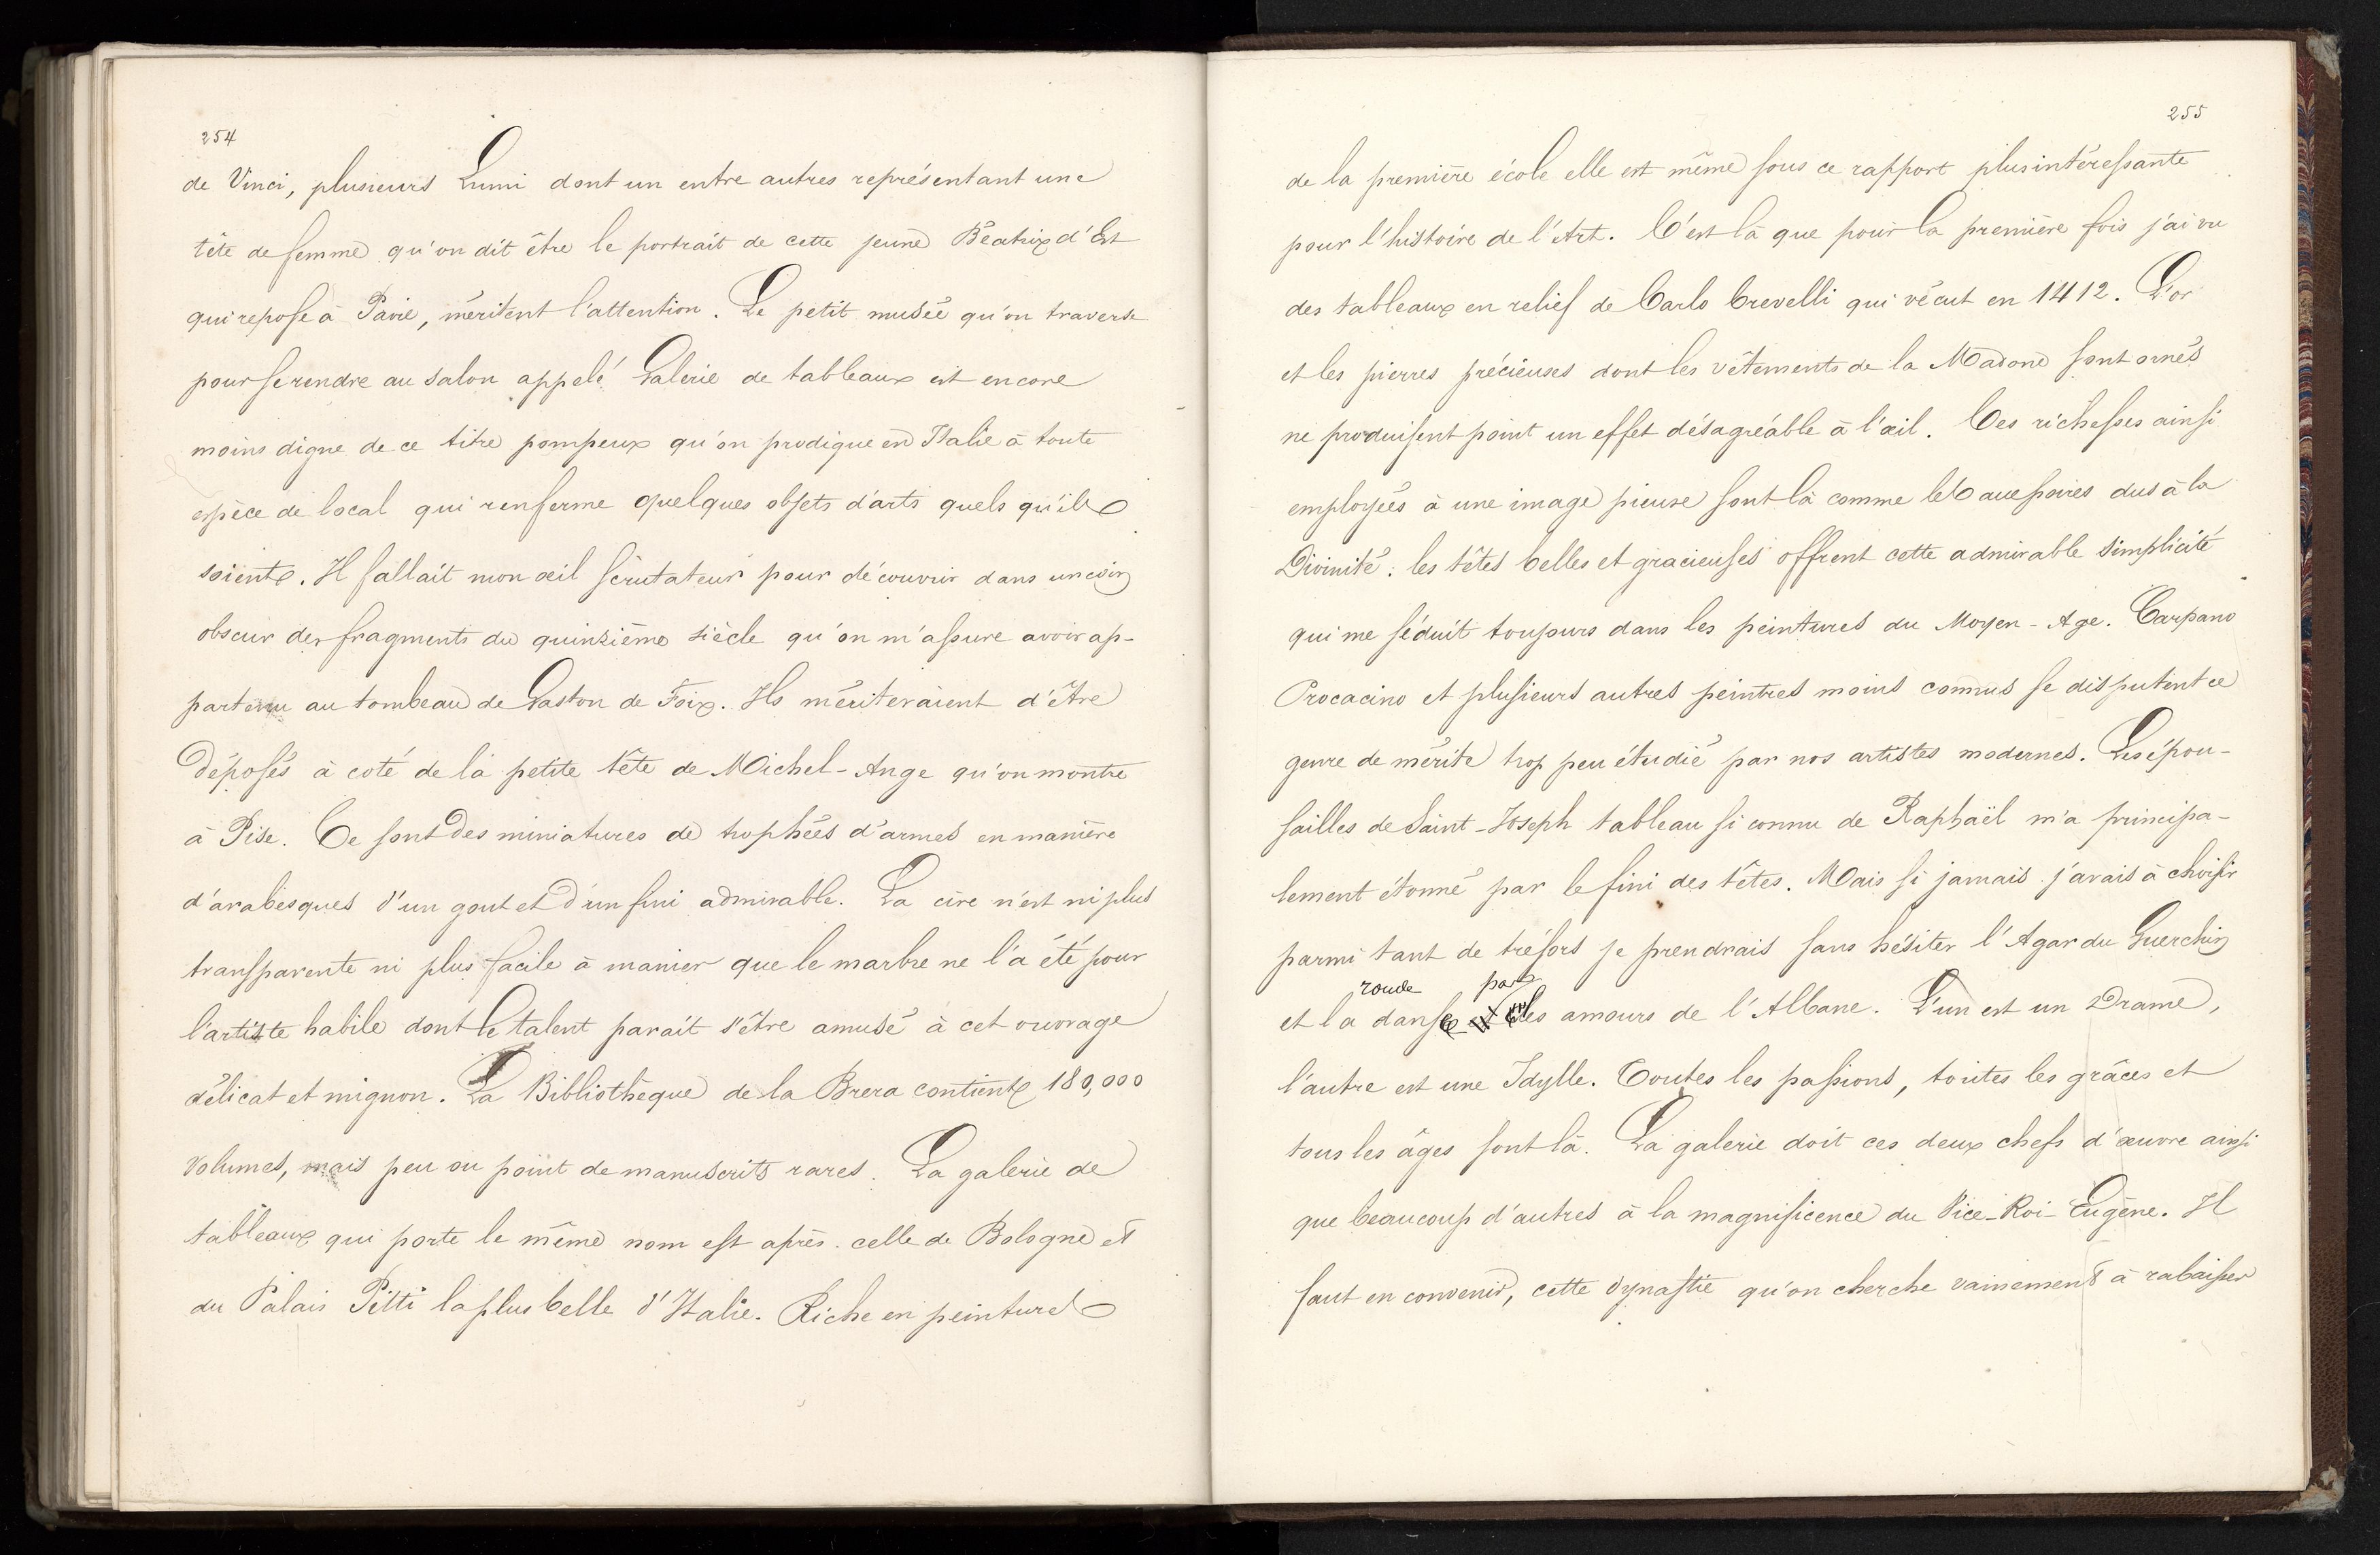 254
de Vinci, plusieurs Lumi dont un entre autres représentant une
tête de femme qu'on dit être le portrait de cette jeune Béatrix d'Est
qui repose à Pavie, méritent l'attention. Le petit musée qu'on traverse
pour se rendre au salon appelé Galerie de tableaux est encore
moins digne de ce titre pompeux qu'on prodigue en Italie à toute
espèce de local qui renferme quelques objets d'arts quels qu'ils
soient. Il fallait mon œil scrutateur pour découvrir dans un coin
obscur des fragments du quinzième siècle qu'on m'assure avoir ap-
partenu au tombeau de Gaston de Foix. Ils mériteraient d'être
déposés à coté de la petite tête de Michel-Ange qu'on montre
à Pise. Ce sont des miniatures de trophées d'armes en manière
d'arabesques d'un gout et d'un fini admirable. La cire n'est ni plus
transparente ni plus facile à manier que le marbre ne l'a été pour
l'artiste habile dont le talent parait s'être amusé à cet ouvrage
délicat et mignon. La Bibliothèque de la Brera contient 180,000
volumes, mais peu ou point de manuscrits rares. La galerie de
tableaux qui porte le même nom est après celle de Bologne et
du Palais Pitti la plus belle d'Italie. Riche en peintures
255
de la première école elle est même sous ce rapport plus intéressante
pour l'histoire de l'Art. C'est là que pour la première fois j'ai vu
des tableaux en relief de Carlo Crevelli qui vécut en 1412. L'or
et les pierres précieuses dont les vêtements de la Madone sont ornés
ne produisent point un effet désagréable à l'œil. Ces richesses ainsi
employées à une image pieuse sont là comme les accessoires dus à la
Divinité: les têtes belles et gracieuses offrent cette admirable simplicité
qui me séduit toujours dans les peintures du Moyen-Age. Carpano
Procacino et plusieurs autres peintres moins connus se disputent ce
genre de mérite trop peu étudié par nos artistes modernes. Les épou-
sailles de Saint-Joseph tableau si connu de Raphaël m'a principa-
lement étonné par le fini des têtes. Mais si jamais j'avais à choisir
parmi tant de trésors je prendrais sans hésiter l'Agar du Guerchin
ronde par
et la danse les amours de l'Albane. L'un est un Drame,
l'autre est une Idylle. Toutes les passions, toutes les grâces et
tous les âges sont là. La galerie doit ces deux chefs d'œuvre ainsi
que beaucoup d'autres à la magnificence du Vice-Roi-Eugène. Il
faut en convenir, cette dynastie qu'on cherche vainement à rabaisser